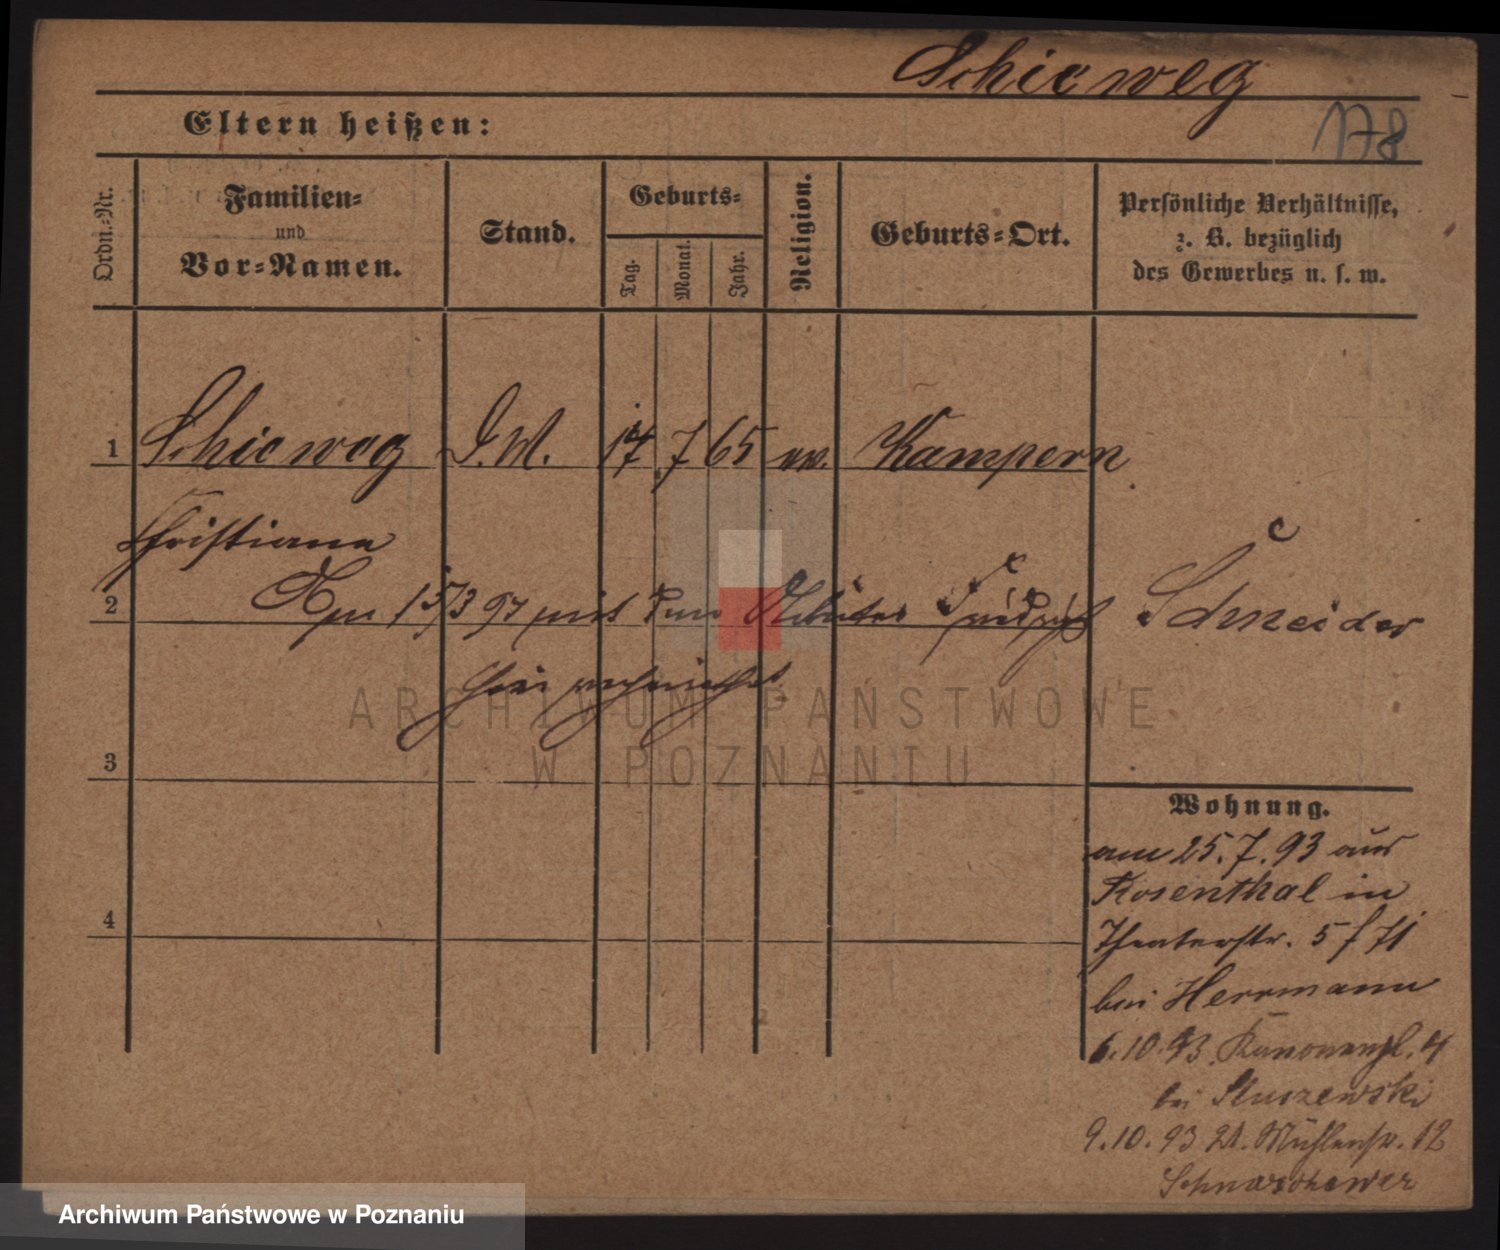 Schieweg
178
Eltern heißen:
Ordn.-Nr.
Familien-
und
Vor-Namen.
Stand.
Geburts-
Tag.
Monat.
Jahr.
Religion.
Geburts-Ort.
Persönliche Verhältnisse,
z. B. bezüglich
des Gewerbes u. s. w.
1 Schieweg D.M. 14 7 65 ev. Kampern
Christiane
2 Am 15/3 97 mit dem Arbeiter Friedrich Schneider
hier verheirathet
3
4
Wohnung.
am 25.7.93 aus
Rosenthal in
Theaterstr. 5
bei Herrmann
6.10.93 Kanonenpl. 4
bei
9.10.93 Mühlenstr. 12
ARCHIWUM PAŃSTWOWE
W POZNANIU
Archiwum Państwowe w Poznaniu